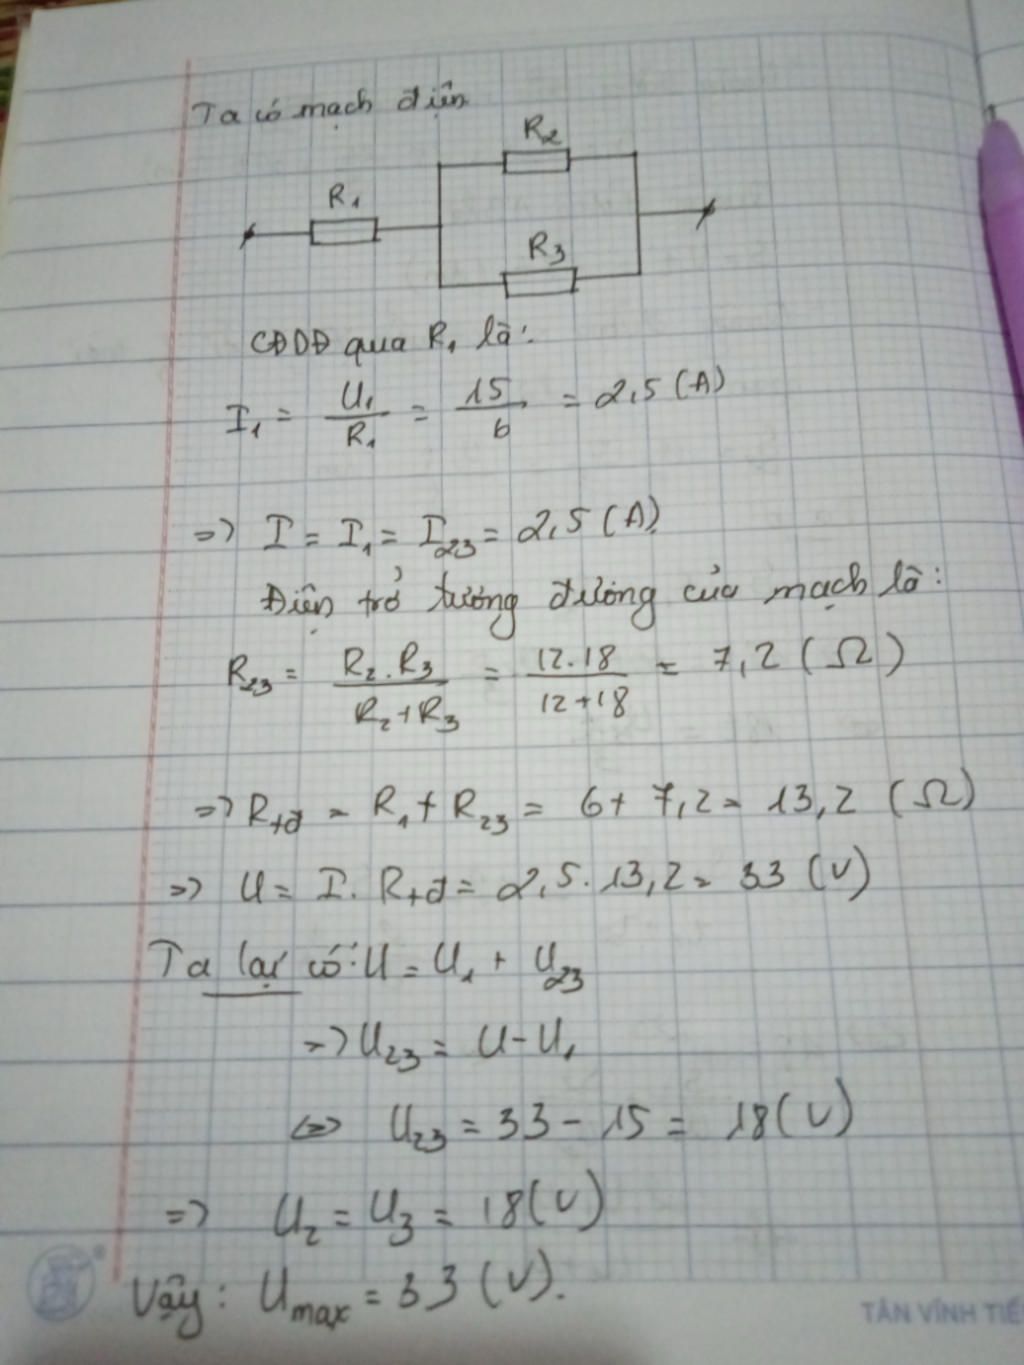 Ta có mạch điện
R2
R1
R3
CĐDĐ qua R1 là:
I1 = U1/R1 = 15/6 = 2,5 (A)
=> I = I1 = I23 = 2,5 (A)
Điện trở tương đương của mạch là:
R23 = R2.R3/R2+R3 = 12.18/12+18 = 7,2 (Ω)
=> Rtđ = R1 + R23 = 6+ 7,2 = 13,2 (Ω)
=> U = I. Rtđ = 2,5. 13,2 = 33 (V)
Ta lại có: U = U1 + U23
=> U23 = U - U1
<=> U23 = 33 - 15 = 18 (V)
=> U2 = U3 = 18 (V)
Vậy: Umax = 33 (V).
TÂN VĨNH TIẾ